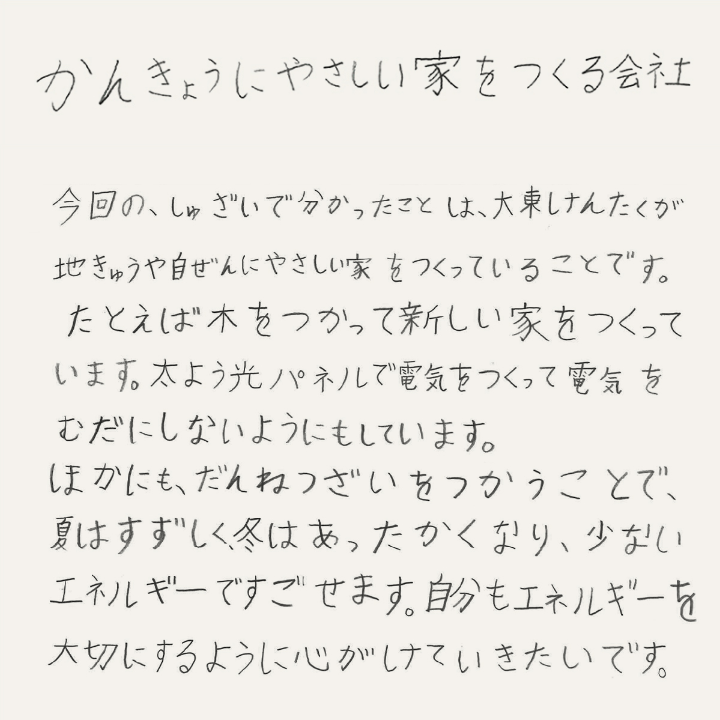 かんきょうにやさしい家をつくる会社
今回の、しゅざいで分かったことは、大東けんたくが
地きゅうや自ぜんにやさしい家をつくっていることです。
たとえば木をつかって新しい家をつくって
います。太よう光パネルで電気をつくって電気を
むだにしないようにもしています。
ほかにも、だんねつざいをつかうことで、
夏はすずしく、冬はあったかくなり、少ない
エネルギーですごせます。自分もエネルギーを
大切にするように心がけていきたいです。